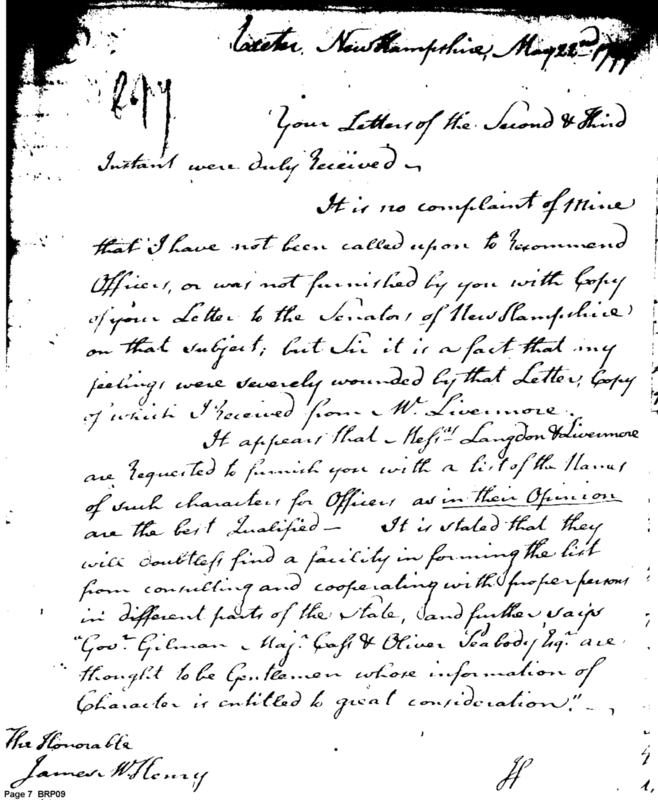 Exeter, New Hampshire, May 22nd 1799
Copy
Your Letters of the Second & Third
Instant were duly Received ~
It is no complaint of Mine
that I have not been called upon to Recommend
Officers, or was not furnished by you with Copy
of your Letter to the Senators of New Hampshire
on that subject; but Sir it is a fact that my
feelings were severely wounded by that Letter, Copy
of which I Received from Mr. Livermore.
It appears that Messrs Langdon & Livermore
are Requested to furnish you with a list of the Names
of such characters for Officers as in their Opinion
are the best Qualified — It is stated that they
will doubtless find a facility in forming the list
from consulting and cooperating with proper persons
in different parts of the State, and further says
"Govr. Gilman Majr. Cass & Oliver Peabody Esqr. are
thought to be Gentlemen whose information of
Character is entitled to great consideration." ~
The Honorable
James McHenry
If
Page 7 BRP09